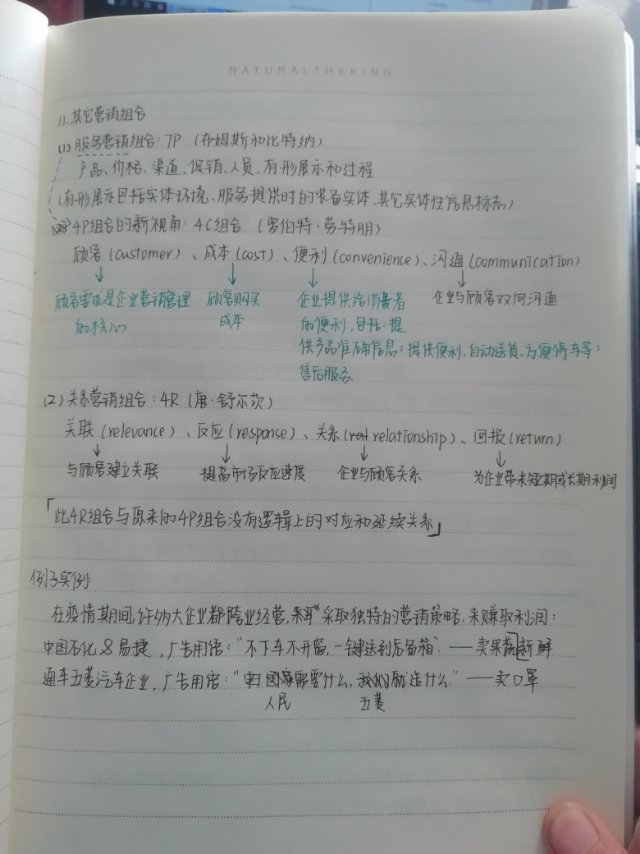 NATURALTHEKING
11.其它营销组合
(1) 服务营销组合:7P (布姆斯和比特纳)
产品、价格、渠道、促销、人员、有形展示和过程
(有形展示包括实体环境、服务提供时的装备实体、其它实体性信息标志)
4P组合的新视角:4C组合 (罗伯特·劳特朋)
顾客(customer)、成本(cost)、便利(convenience)、沟通(communication)
顾客需求是企业营销管理 顾客购买 企业提供给消费者 企业与顾客双向沟通
的核心 成本 的便利,包括:提
供产品准确信息;提供便利,自动送货、方便停车等;
售后服务
(2) 关系营销组合:4R (唐·舒尔茨)
关联(relevance)、反应(response)、关系(relationship)、回报(return)
与顾客建立关联 提高市场反应速度 企业与顾客关系 为企业带来短期或长期利润
「此4R组合与原来的4P组合没有逻辑上的对应和延续关系」
例子实例
在疫情期间,许多大企业都跨业经营,采取独特的营销策略,来赚取利润:
中国石化&易捷,广告用语:"不下车不开窗,一键送到后备箱" —— 卖果蔬新鲜
通车五菱汽车企业,广告用语:" 需要什么, 就造什么" —— 卖口罩
人民 五菱